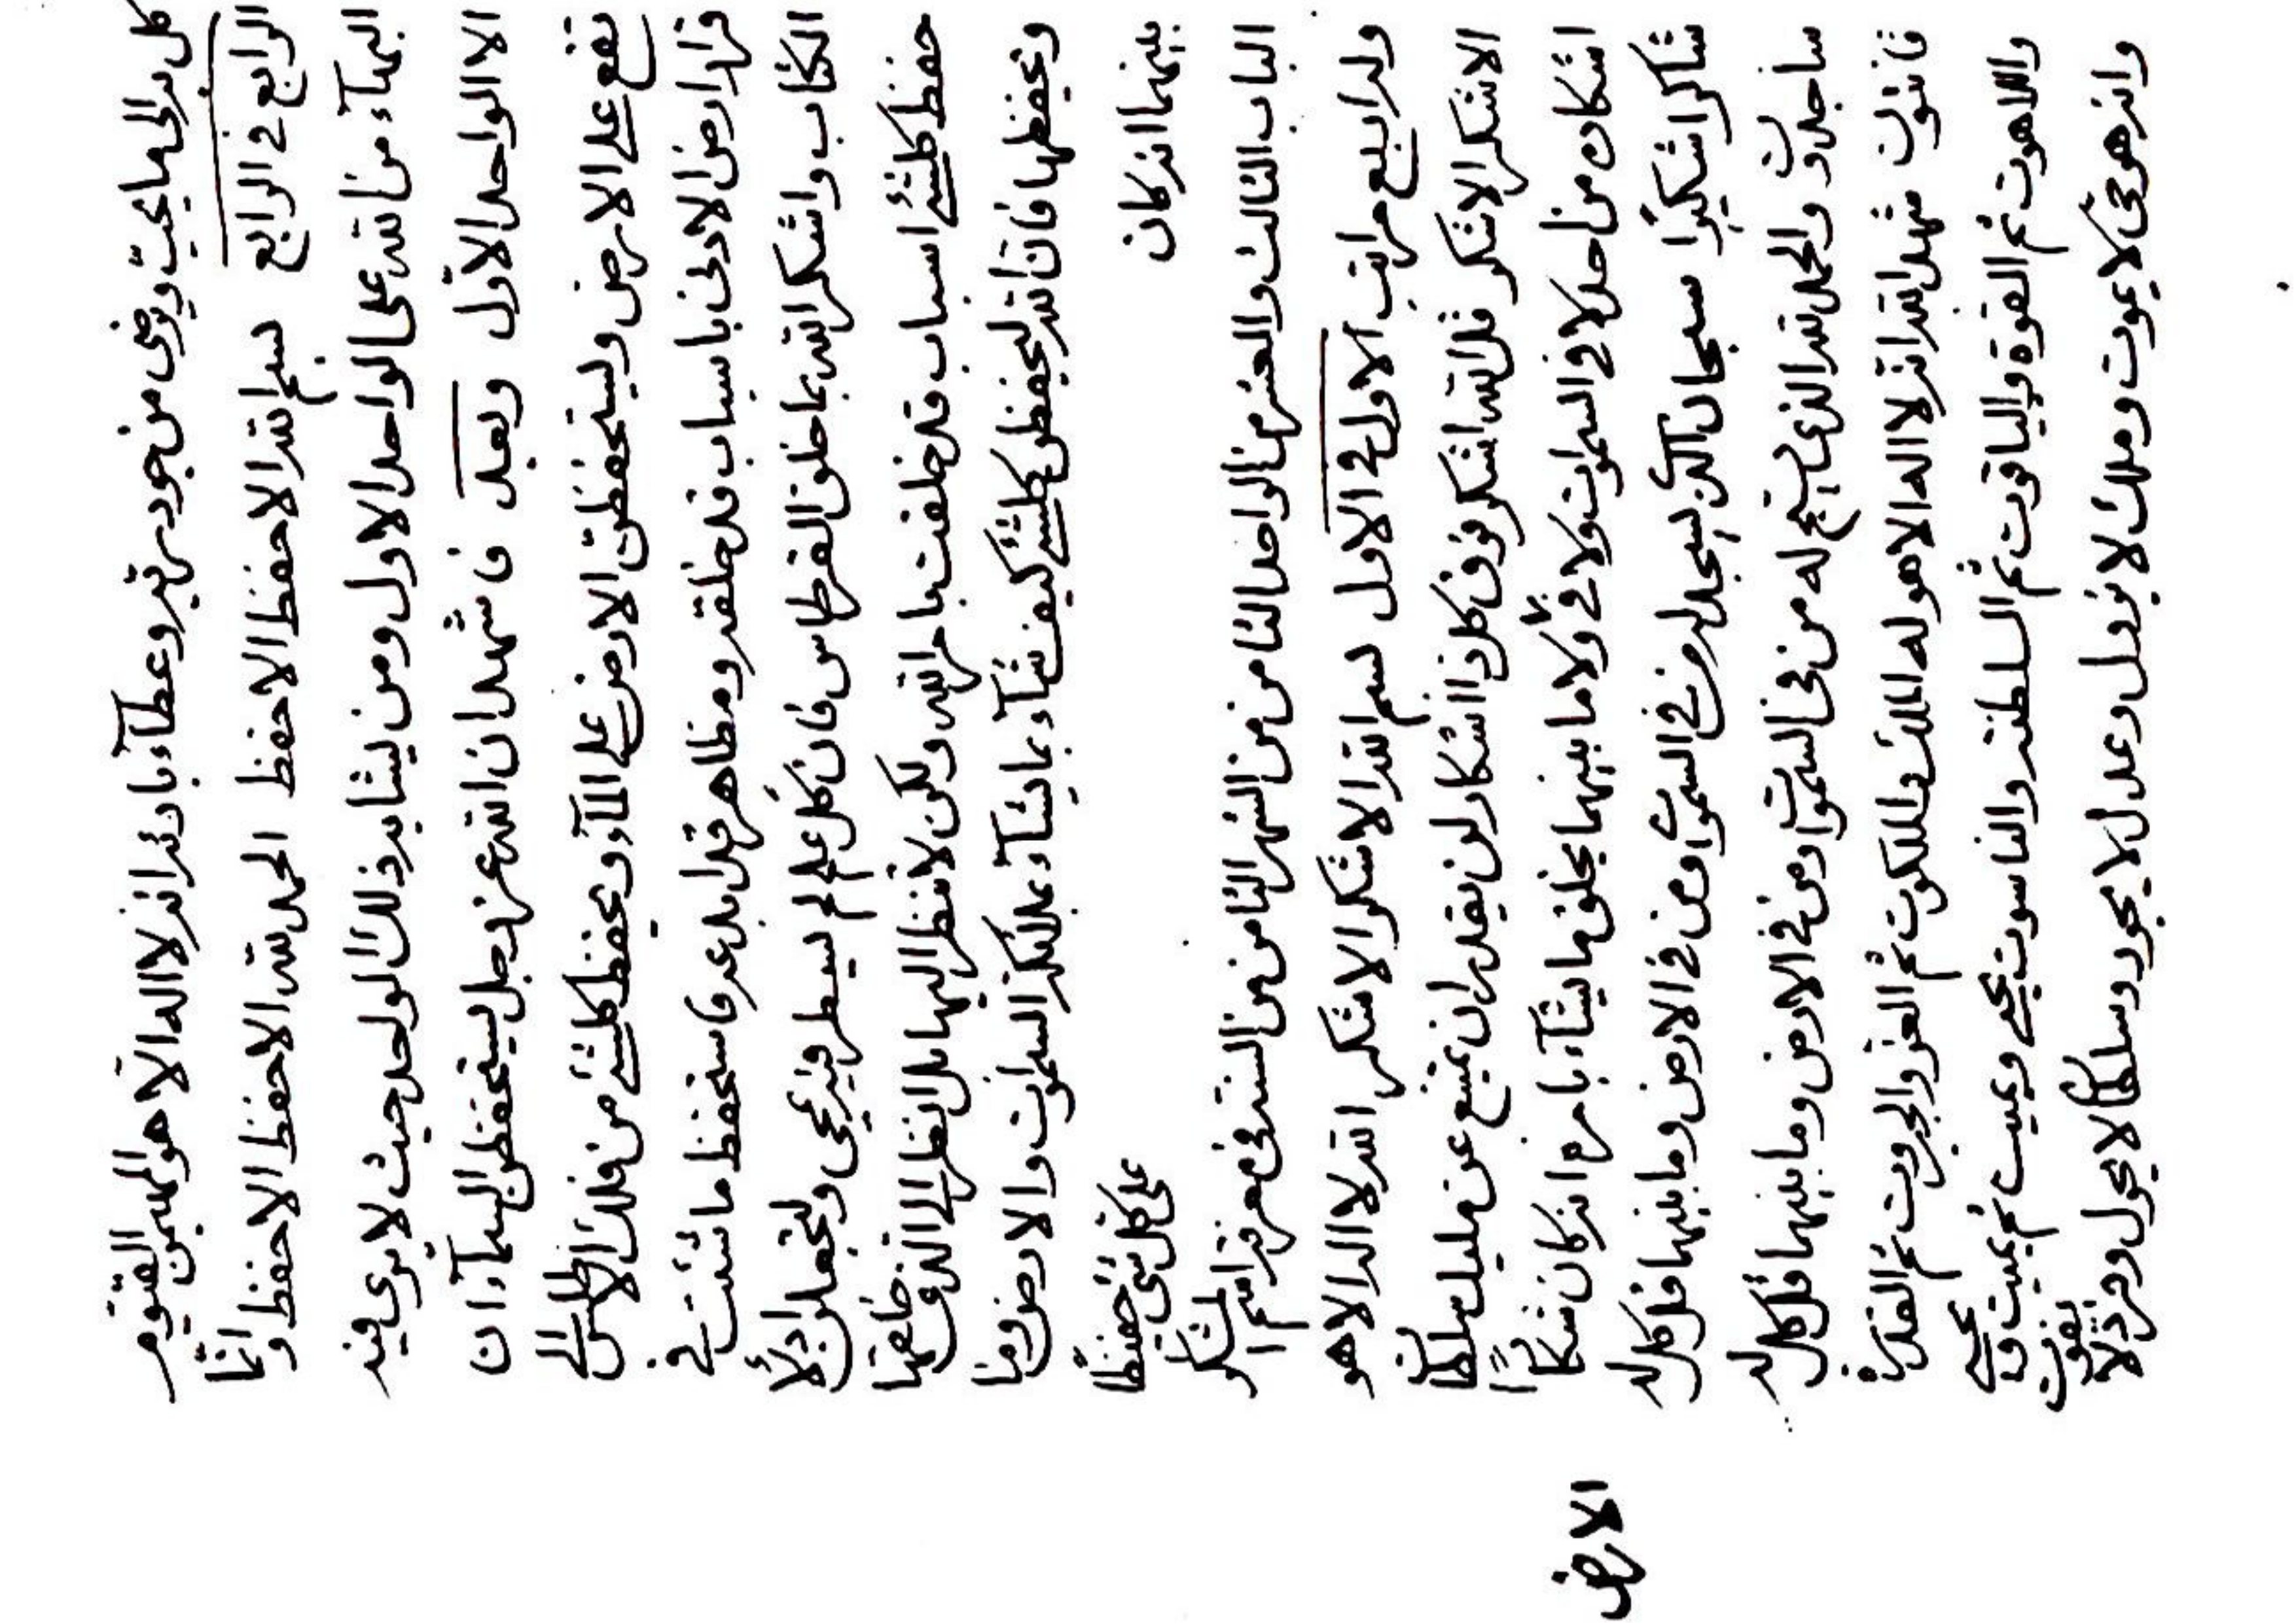 كل بدائع ما يحب ويرضى من جود ربه وعطآء بارئه انه لا اله الا هو المهيمن القيوم
الرابع في الرابع بسم الله الاحفظ الاحفظ الحمد لله الاحفظ الاحفظ وانما
البهآء من الله على الواحد الاول ومن يشابه ذلك الواحد حيث لا يرى فيه
الا الواحد الاول وبعد فاشهد ان الله عز وجل ليستحفظن السمآء ان
تقع على الارض وليستحفظن الارض على المآء ويحفظ كلشئ من فلك الاطلس الى
قرار ارض الادنى باسباب قد خلقه ومظاهر قد ابدعه فاستحفظ ما شئت في
الكتاب واشكر الله بما خلق القرطاس فان كل علم لم يسطر فيه يمحى ولتجعلن اوله
حفظ كلشئ اسباب قد خلقت بامر الله ولكن لا تنظر اليها بل انظر الى الذي خلقها
ويحفظها فان الله ليحفظن كلشئ كيف يشآء بما يشآء بملائكة السموات والارض وما
بينهما انه كان على كل شئ حفيظا
الباب الثالث والعشر من الواحد الثامن من الشهر الثامن من السنة في معرفة اسم الشكر
وله اربع مراتب الاول في الاول بسم الله الاشكر الاشكر الله لا اله الا هو
الاشكر الاشكر قل الله اشكر فوق كل ذا اشكار لن يقدر ان يمتنع عن مليك سلطان
اشكاره من احد لا في السموات ولا في الارض ولا ما بينهما يخلق ما يشآء بامره انه كان شكارا
شاكرا شكيرا سبحان الذي يسجد له من في السموات ومن في الارض وما بينهما قل كل له
ساجدون والحمد لله الذي يسبح له من في السموات ومن في الارض وما بينهما قل كل له
قانتون شهد الله انه لا اله الا هو له الملك والملكوت ثم العز والجبروت ثم القدرة
واللاهوت ثم القوة والياقوت ثم السلطنة والناسوت يحيي ويميت ثم يميت ويحيي
وانه هو حي لا يموت وملك لا يزول وعدل لا يجور وسلطان لا يحول وفرد لا يفوت